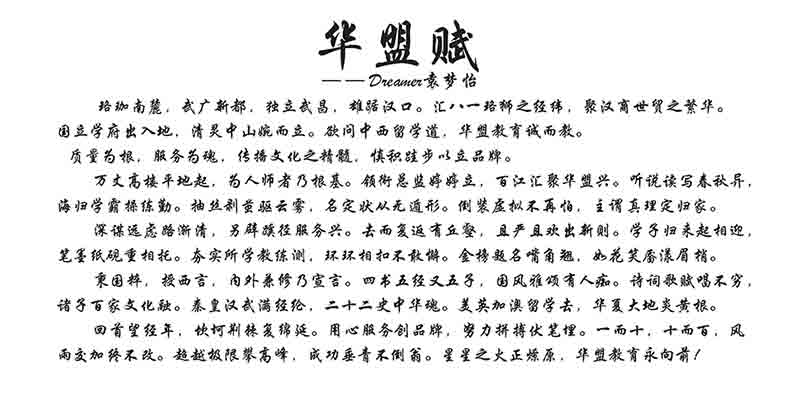 华盟赋
——Dreamer袁梦怡
珞珈南麓，武广新都，独立武昌，雄踞汉口。汇八一珞狮之经纬，聚汉商世贸之繁华。
国立学府出入地，清灵中山婉而立。欲问中西留学道，华盟教育诚而教。
质量为根，服务为魂，传播文化之精髓，慎积跬步以立品牌。
万丈高楼平地起，为人师者乃根基。领衔总监婷婷立，百江汇聚华盟兴。听说读写春秋异，
海归学霸操练勤。抽丝剥茧驱云雾，名定状从无遁形。倒装虚拟不再怕，主谓真理定归家。
深谋远虑路渐清，另辟蹊径服务兴。去而复返有丘壑，且严且欢出新则。学子归来起相迎，
笔墨纸砚重相托。夯实所学教练测，环环相扣不敢懈。金榜题名嘴角翘，如花笑靥漾眉梢。
秉国粹，授西言，内外兼修乃宣言。四书五经又五子，国风雅颂有人痴。诗词歌赋唱不穷，
诸子百家文化融。秦皇汉武满经纶，二十二史中华魂。美英加澳留学去，华夏大地炎黄根。
回首望经年，坎坷荆棘复绵延。用心服务创品牌，努力拼搏伏笔埋。一而十，十而百，风
雨交加终不改。超越极限攀高峰，成功垂青不倒翁。星星之火正燎原，华盟教育永向前！